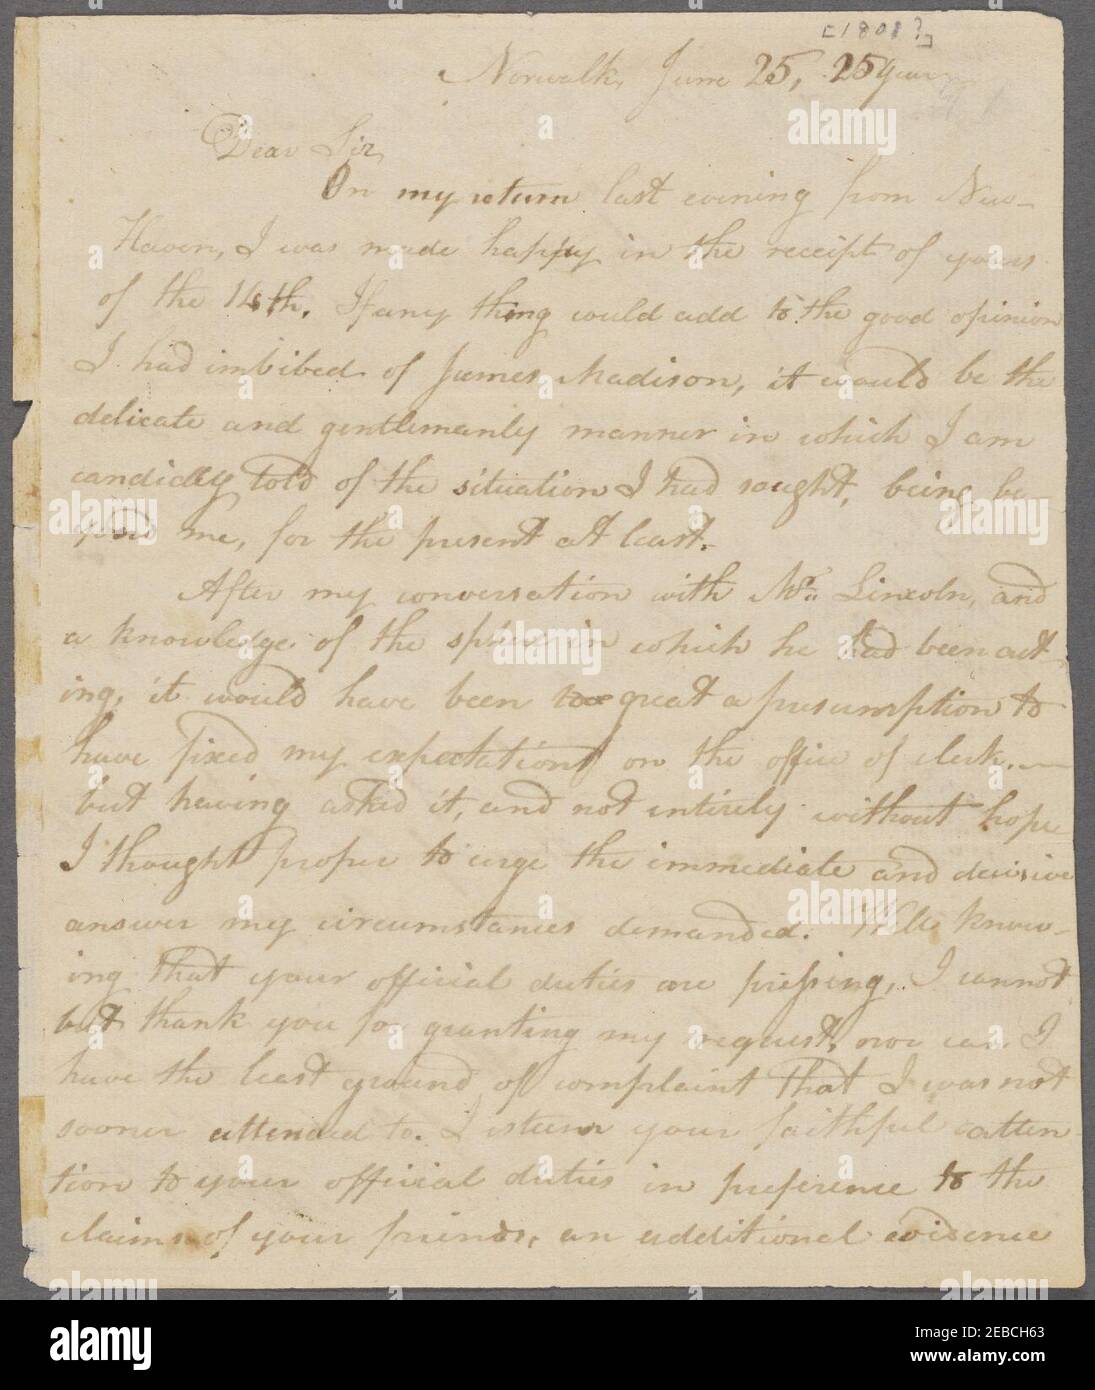 [1801?]
Norwalk, June 25, 25 year
Dear Sir,
On my return last evening from New-
Haven, I was made happy in the receipt of yours
of the 14th. If any thing could add to the good opinion
I had imbibed of James Madison, it would be the
delicate and gentlemanly manner in which I am
candidly told of the situation I had sought, being be-
yond me, for the present at least.
After my conversation with Mr. Lincoln, and
a knowledge of the spirit in which he had been act-
ing, it would have been too great a presumption to
have fixed my expectations on the office of clerk.—
but having asked it, and not entirely without hope
I thought proper to urge the immediate and decisive
answer my circumstances demanded. Well know-
ing that your official duties are pressing, I cannot
but thank you for granting my request, nor can I
have the least ground of complaint that I was not
sooner attended to. I esteem your faithful atten-
tion to your official duties in preference to the
claims of your friends, an additional evidence
alamy
Image ID: 2EBCH63
www.alamy.com